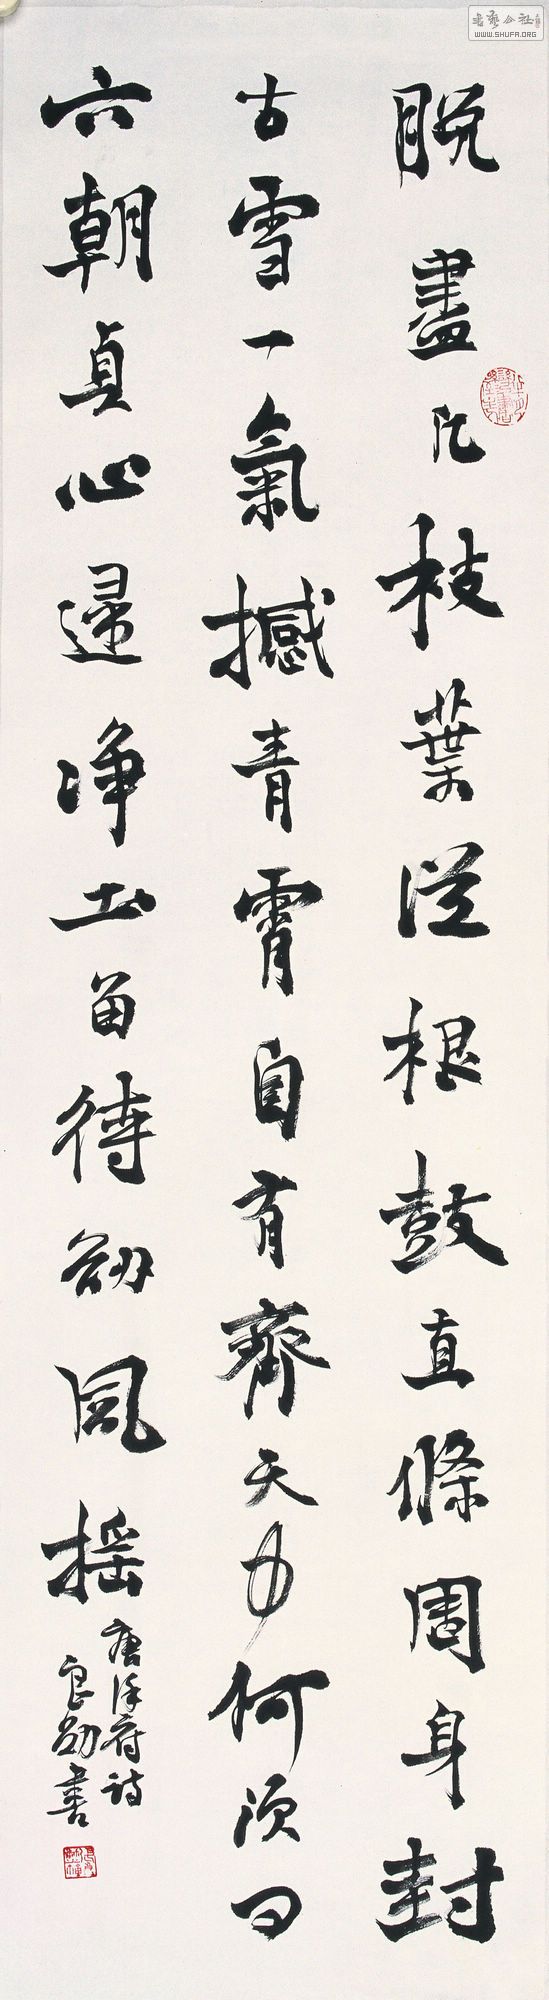 脱盡凡枝葉從根鼓直條周身封
古雪一氣撼青霄自有齊天力何須日
六朝貞心歸净土留待劲風摇
唐

良勋書
書藝公社
WWW.SHUFA.ORG